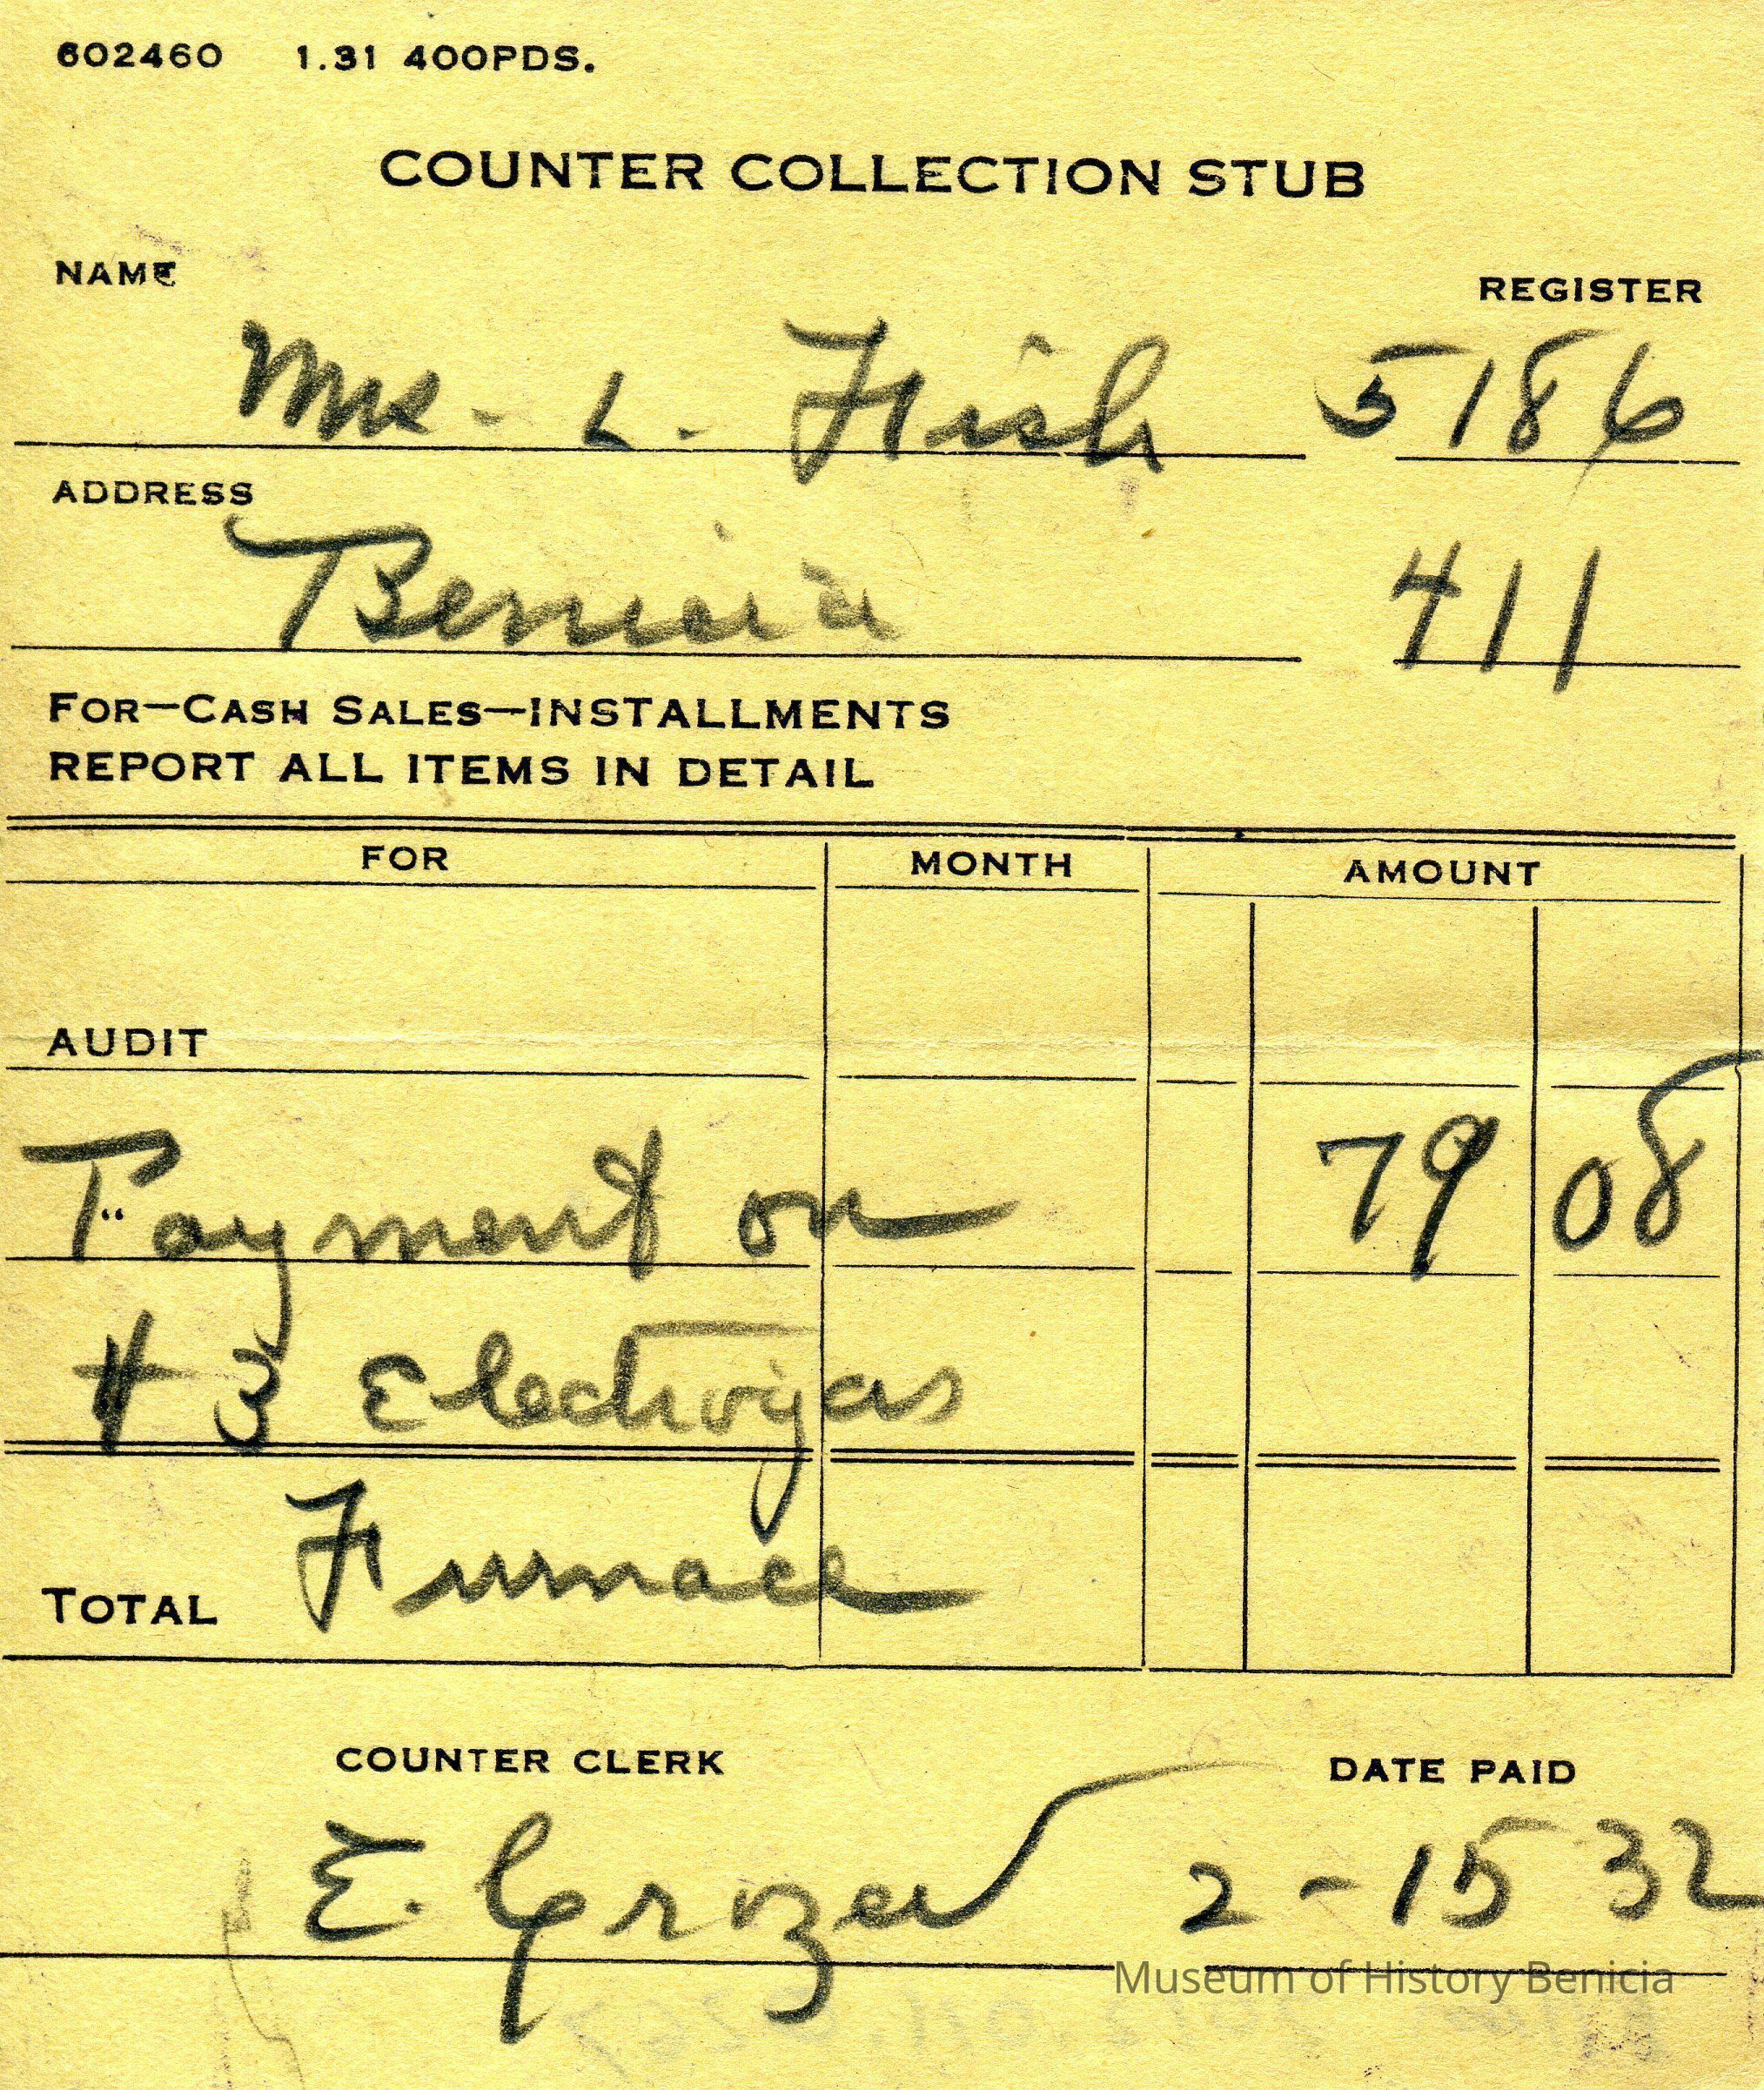 602460 1.31 400PDS.
COUNTER COLLECTION STUB
NAME REGISTER
Mrs. L. Fish 5186
ADDRESS
Benicia 411
FOR—CASH SALES—INSTALLMENTS
REPORT ALL ITEMS IN DETAIL
FOR MONTH AMOUNT
AUDIT
Payment on 79 08
# 3 Electrogas
Furnace
TOTAL
COUNTER CLERK DATE PAID
E. 2-15 32
Museum of History Benicia